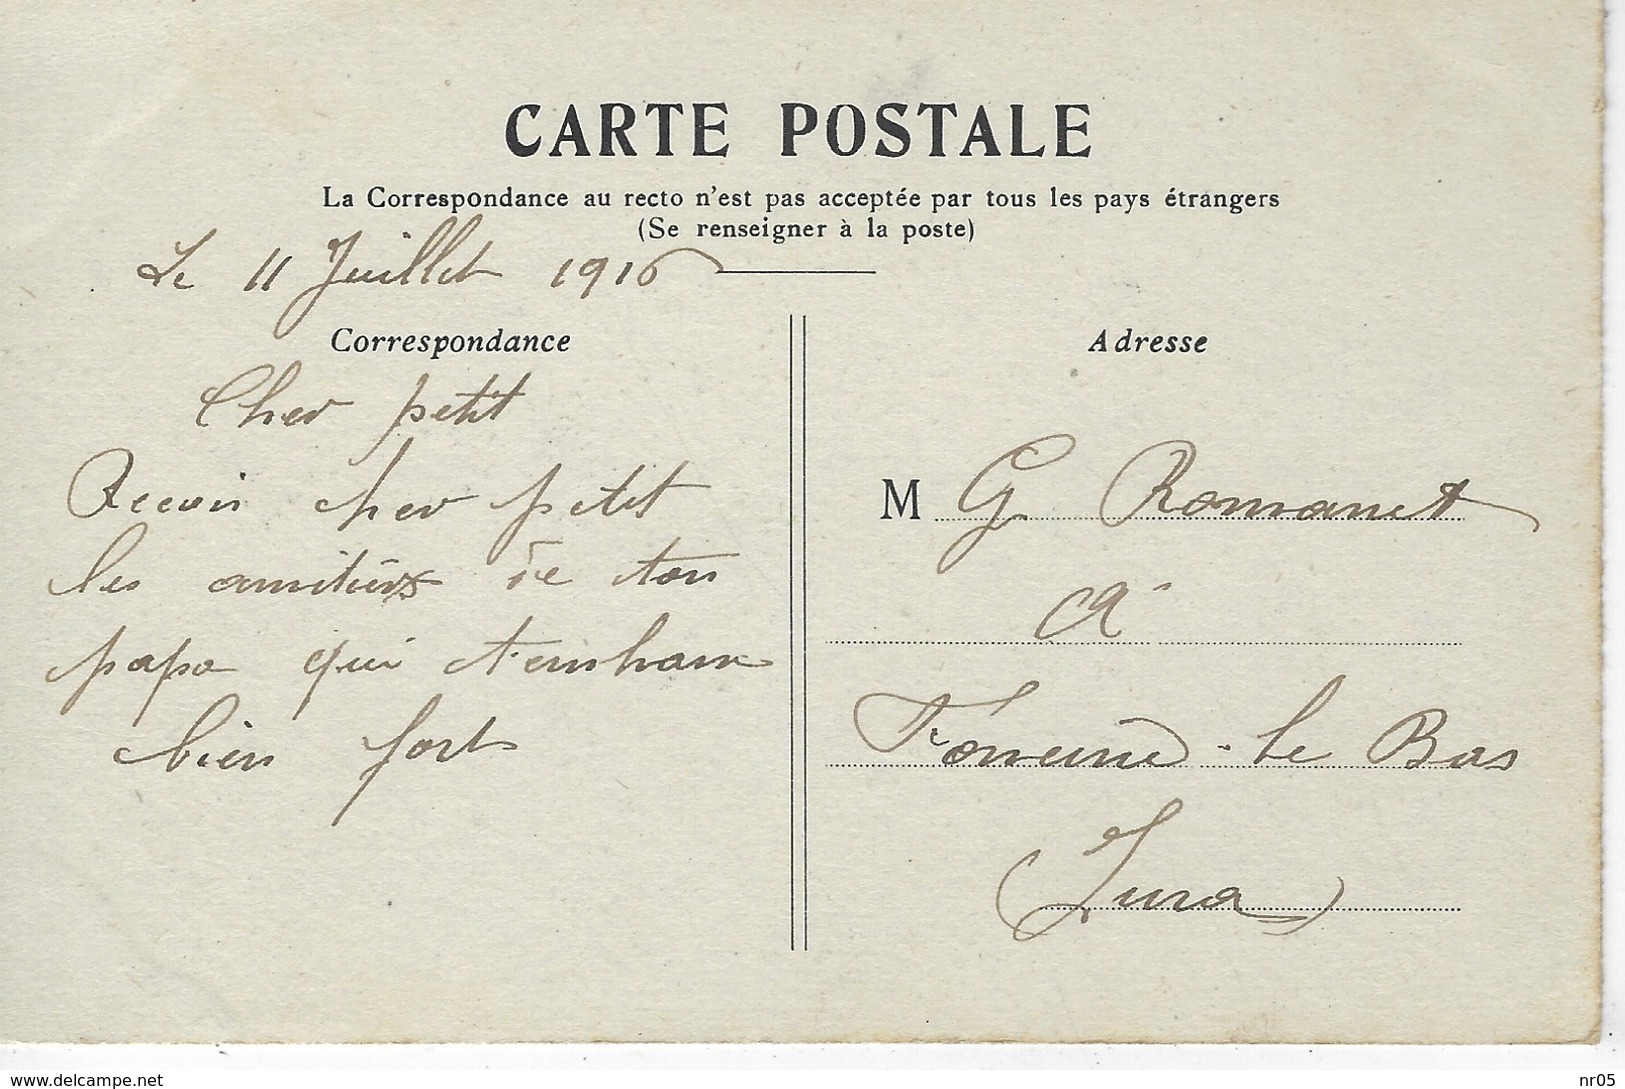 CARTE POSTALE
La Correspondance au recto n'est pas acceptée par tous les pays étrangers
(Se renseigner à la poste)
Le 11 Juillet 1916
Correspondance
Cher petit
Recois cher petit
les amitiés de ton
papa qui t'embrasse
bien fort
Adresse
M G. Romanet
à
Foncine-le Bas
(Jura)
www.delcampe.net
nr05